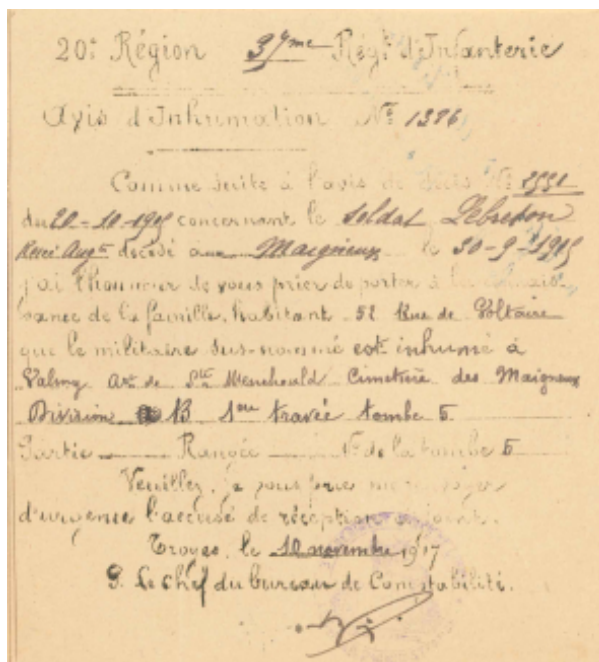 20e Région 37me Régt d'Infanterie
Avis d'Inhumation No 1386
Comme suite à l'avis de décès No
du 20-10-1915 concernant le Soldat Lebreton
René Augte décédé aux Maigneux le 30-9-1915
j'ai l'honneur de vous prier de porter à la connais-
sance de la famille, habitant 52 Rue de Voltaire
que le militaire sus-nommé est inhumé à
Valmy Art de Ste Menehould Cimetière des Maigneux
Division B 1ere travée tombe 5
Partie Rangée No de la tombe 5
Veuillez, je vous prie m'envoyer
d'urgence l'accusé de réception ci-joint.
Troyes, le 10 novembre 1917
P. Le chef du bureau de Comptabilité.